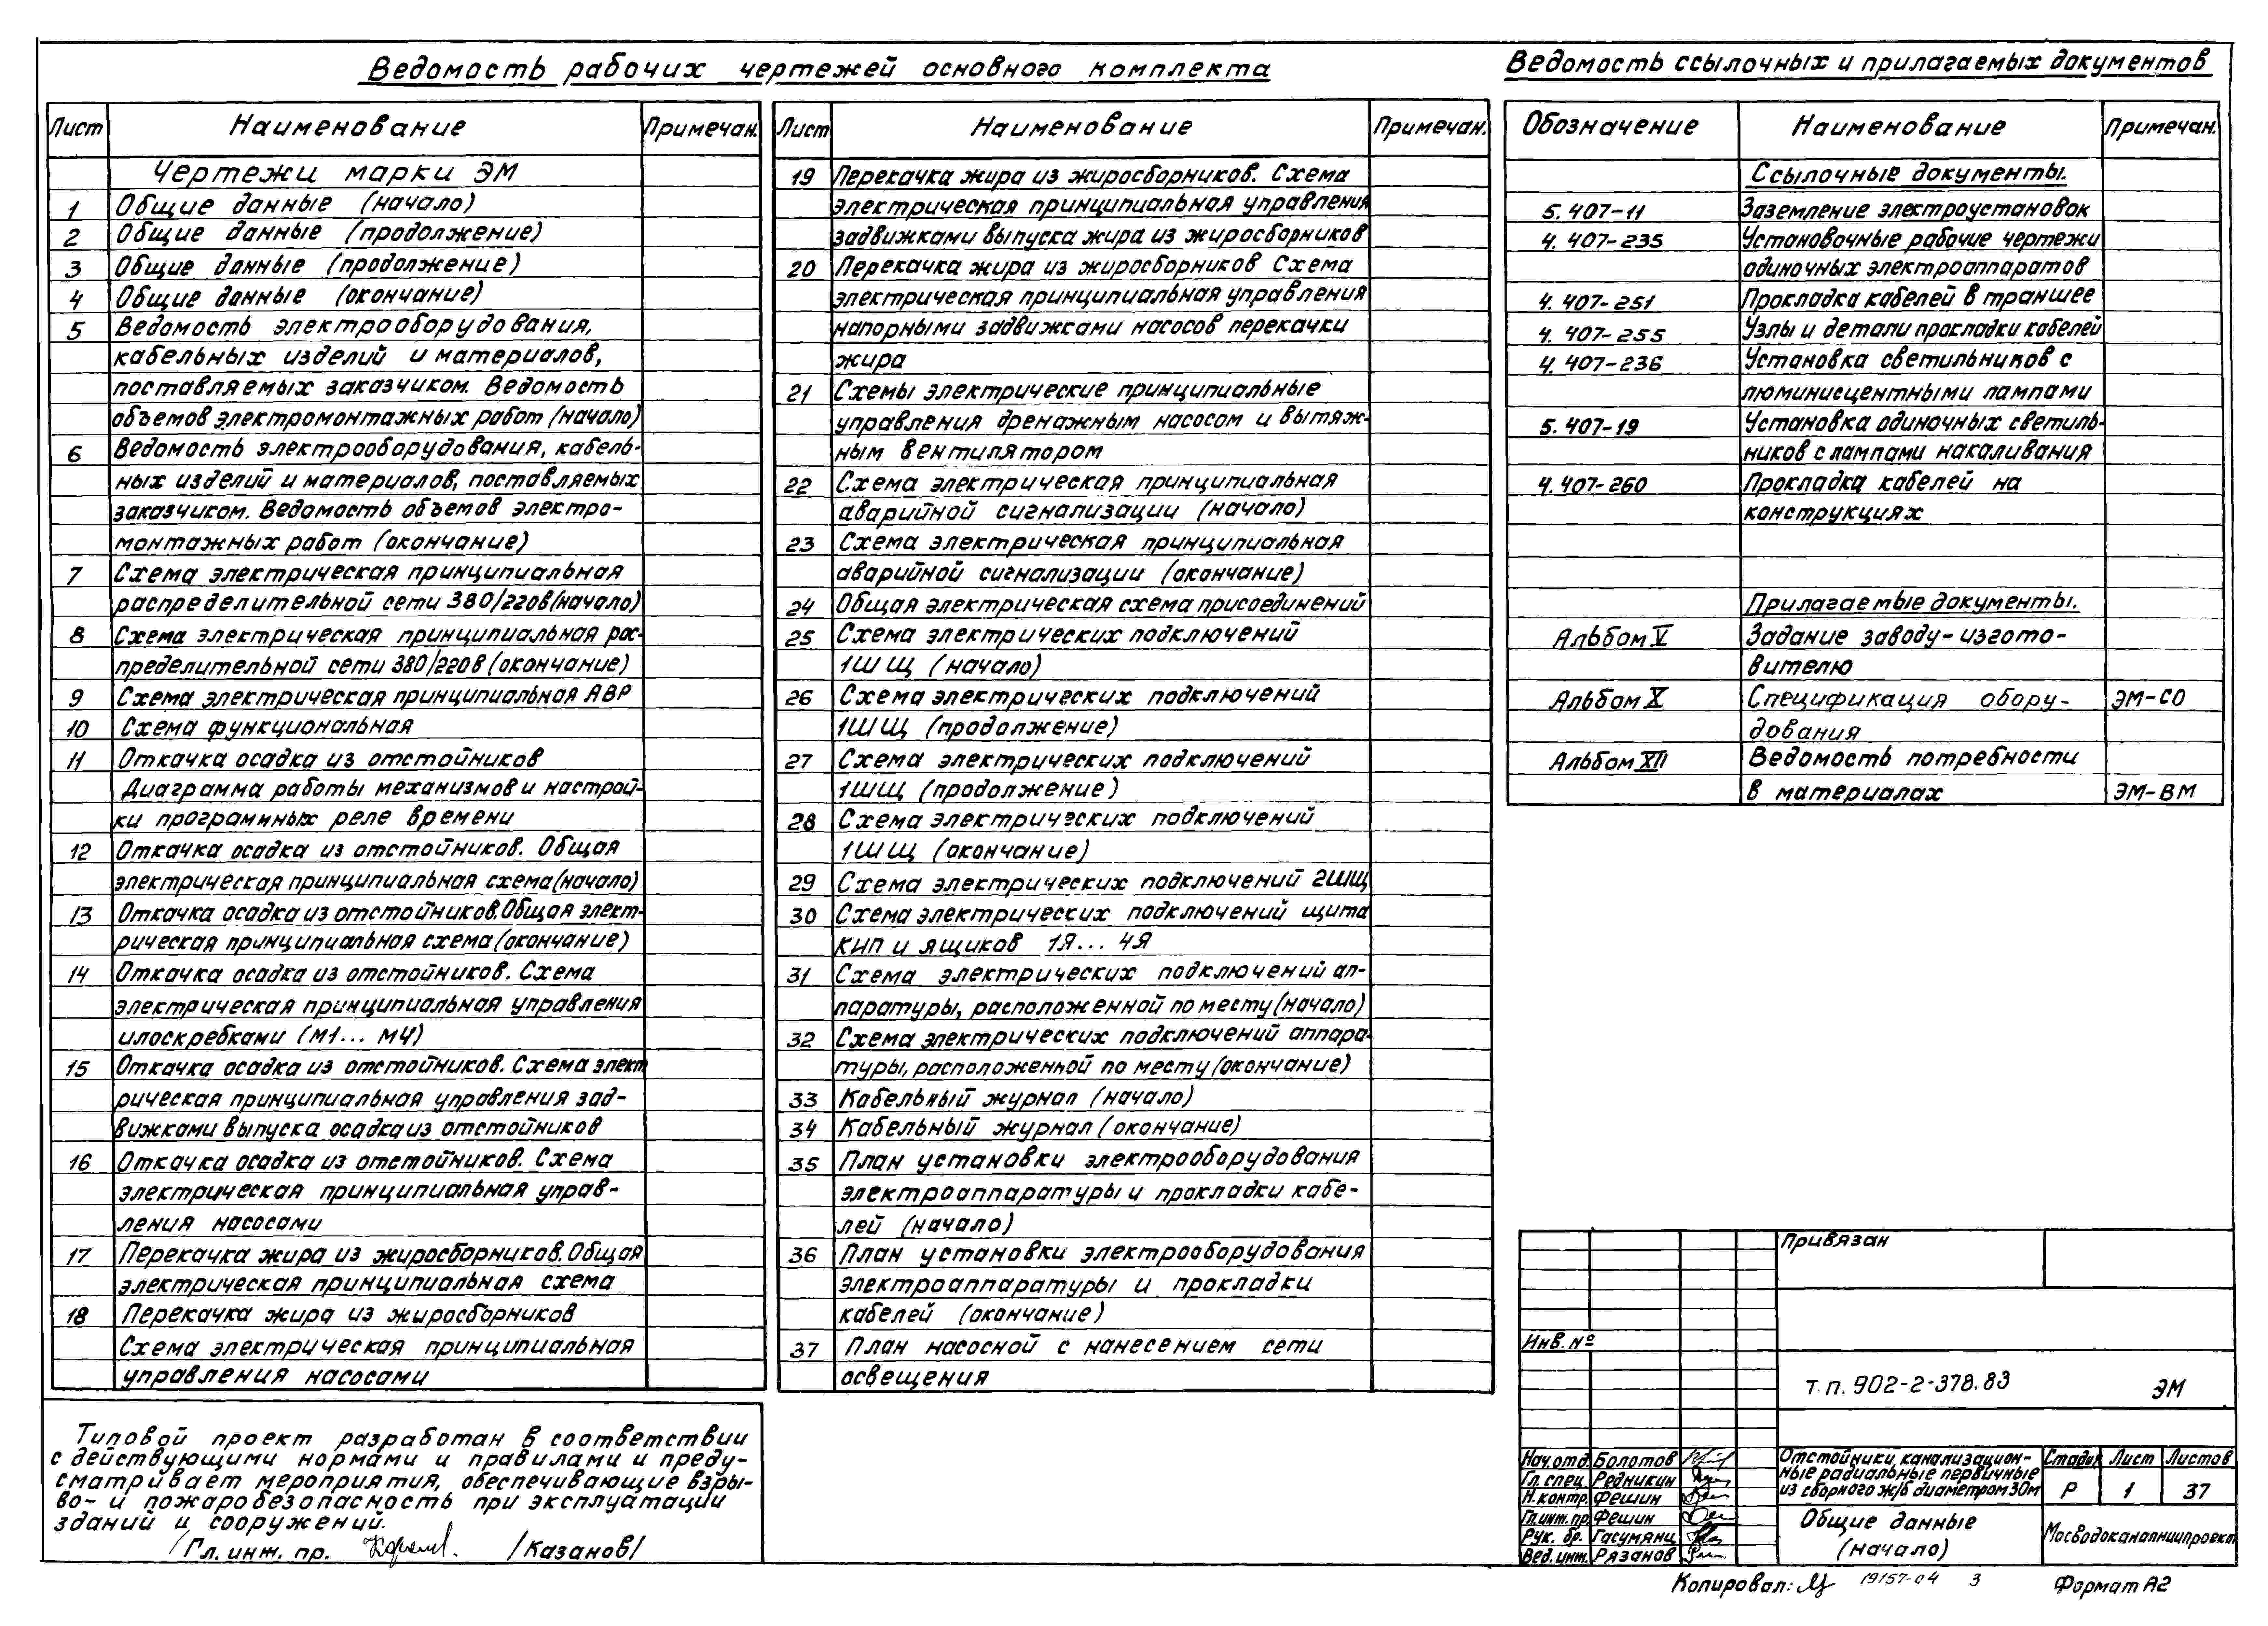 Ведомость рабочих чертежей основного комплекта
Лист Наименование Примечан.
Чертежи марки ЭМ
1 Общие данные (начало)
2 Общие данные (продолжение)
3 Общие данные (продолжение)
4 Общие данные (окончание)
5 Ведомость электрооборудования,
кабельных изделий и материалов,
поставляемых заказчиком. Ведомость
объемов электромонтажных работ (начало)
6 Ведомость электрооборудования, кабель-
ных изделий и материалов, поставляемых
заказчиком. Ведомость объемов электро-
монтажных работ (окончание)
7 Схема электрическая принципиальная
распределительной сети 380/220в (начало)
8 Схема электрическая принципиальная рас-
пределительной сети 380/220в (окончание)
9 Схема электрическая принципиальная АВР
10 Схема функциональная
11 Откачка осадка из отстойников
Диаграмма работы механизмов и настрой-
ки программных реле времени
12 Откачка осадка из отстойников. Общая
электрическая принципиальная схема (начало)
13 Откачка осадка из отстойников. Общая элект-
рическая принципиальная схема (окончание)
14 Откачка осадка из отстойников. Схема
электрическая принципиальная управления
илоскребками (М1... М4)
15 Откачка осадка из отстойников. Схема элект
рическая принципиальная управления зад-
вижками выпуска осадка из отстойников
16 Откачка осадка из отстойников. Схема
электрическая принципиальная управ-
ления насосами
17 Перекачка жира из жиросборников. Общая
электрическая принципиальная схема
18 Перекачка жира из жиросборников
Схема электрическая принципиальная
управления насосами
Лист Наименование Примечан.
19 Перекачка жира из жиросборников. Схема
электрическая принципиальная управления
задвижками выпуска жира из жиросборников
20 Перекачка жира из жиросборников Схема
электрическая принципиальная управления
напорными задвижками насосов перекачки
жира
21 Схемы электрические принципиальные
управления дренажным насосом и вытяж-
ным вентилятором
22 Схема электрическая принципиальная
аварийной сигнализации (начало)
23 Схема электрическая принципиальная
аварийной сигнализации (окончание)
24 Общая электрическая схема присоединений
25 Схема электрических подключений
1ШЩ (начало)
26 Схема электрических подключений
1ШЩ (продолжение)
27 Схема электрических подключений
1ШЩ (продолжение)
28 Схема электрических подключений
1ШЩ (окончание)
29 Схема электрических подключений 2ШЩ
30 Схема электрических подключений щита
КИП и ящиков 1Я... 4Я
31 Схема электрических подключений ап-
паратуры, расположенной по месту (начало)
32 Схема электрических подключений аппара-
туры, расположенной по месту (окончание)
33 Кабельный журнал (начало)
34 Кабельный журнал (окончание)
35 План установки электрооборудования
электроаппаратуры и прокладки кабе-
лей (начало)
36 План установки электрооборудования
электроаппаратуры и прокладки
кабелей (окончание)
37 План насосной с нанесением сети
освещения
Ведомость ссылочных и прилагаемых документов
Обозначение Наименование Примечан.
Ссылочные документы.
5.407-11 Заземление электроустановок
4.407-235 Установочные рабочие чертежи
одиночных электроаппаратов
4.407-251 Прокладка кабелей в траншее
4.407-255 Узлы и детали прокладки кабелей
4.407-236 Установка светильников с
люминисцентными лампами
5.407-19 Установка одиночных светиль-
ников с лампами накаливания
4.407-260 Прокладка кабелей на
конструкциях
Прилагаемые документы.
Альбом V Задание заводу-изгото-
вителю
Альбом X Спецификация обору- ЭМ-СО
дования
Альбом XII Ведомость потребности
в материалах ЭМ-ВМ
Типовой проект разработан в соответствии
с действующими нормами и правилами и преду-
сматривает мероприятия, обеспечивающие взры-
во- и пожаробезопасность при эксплуатации
зданий и сооружений.
/Гл. инж. пр. /Казанов/
Привязан
Инв. №
Т.п. 902-2-378.83 ЭМ
Нач.отд. Болотов
Гл. спец. Редникин
Н.контр. Фешин
Гл.инж.пр. Фешин
Рук. бр. Гасумянц
Вед. инж. Рязанов
Отстойники канализацион-
ные радиальные первичные
из сборного ж/б диаметром 30м
Стадия Лист Листов
Р 1 37
Общие данные
(начало)
Мосводоканалниипроект
Копировал: 19157-04 3 Формат А2